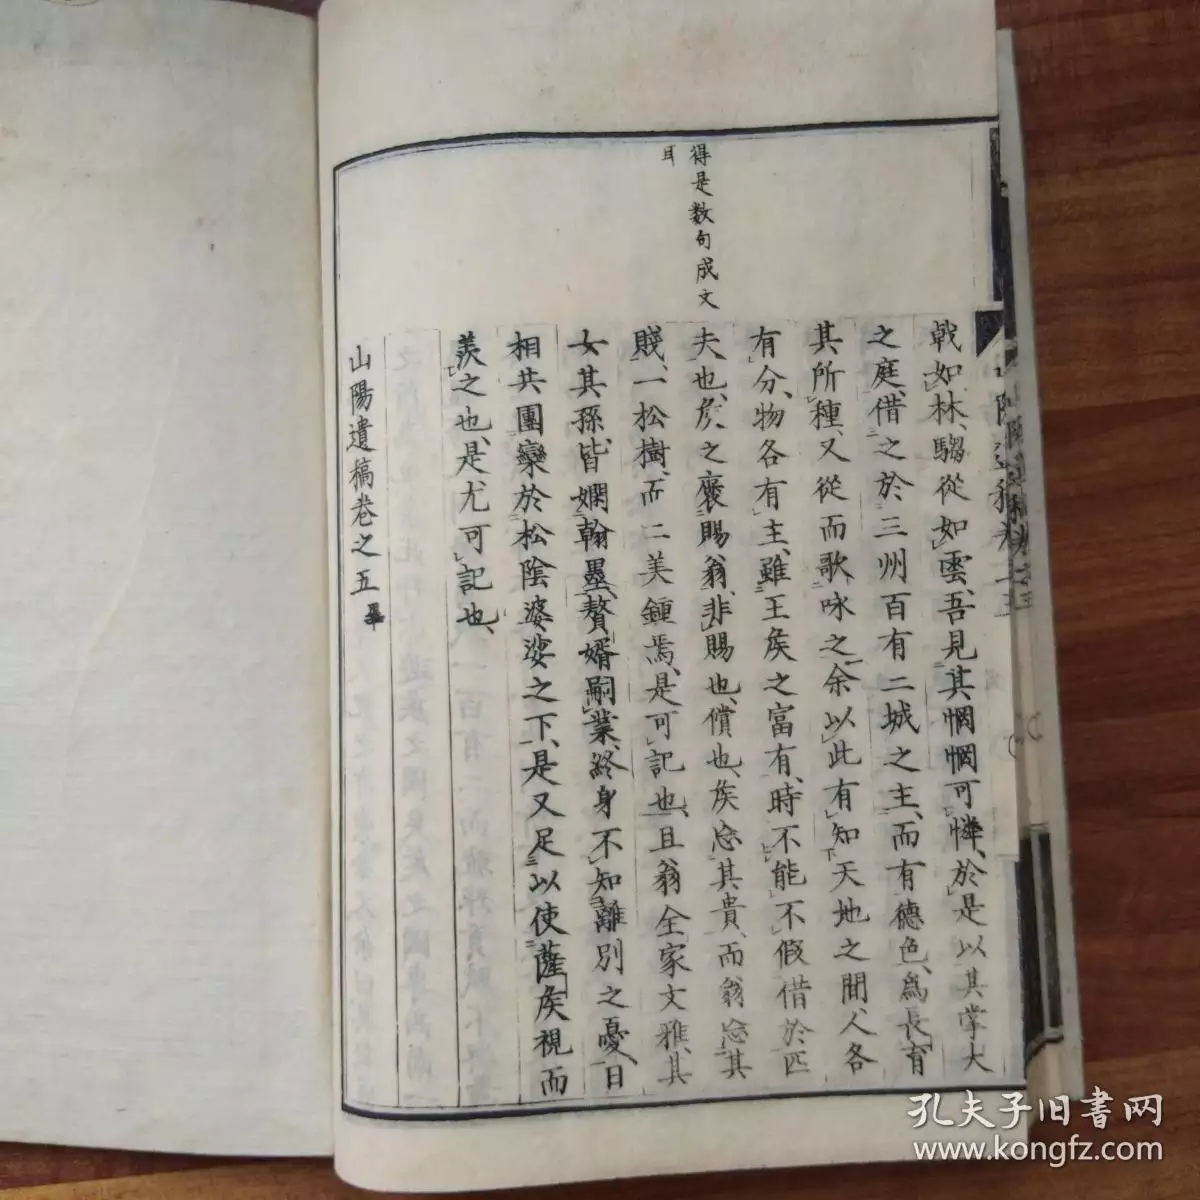 得是数句成文
耳
戟如林、騶從如雲、吾見其悯悯可憐、於是以其掌大
之庭、借之於三州百有二城之主、而有德色、為長育
其所種、又從而歌咏之、余以此有知天地之間、人各
有分、物各有主、雖王矦之富有、時不能不假借於匹
夫也、矦之褒賜翁、非賜也、償也、矦忘其貴、而翁忘其
賤、一松樹、而二美鍾焉、是可記也、且翁全家文雅、其
女其孫、皆嫻翰墨、贅婿嗣業、終身不知離別之憂、日
相共團欒於松陰婆娑之下、是又足以使薩矦視而
羨之也、是尤可記也、
山陽遺稿卷之五畢
孔夫子旧書网
www.kongfz.com